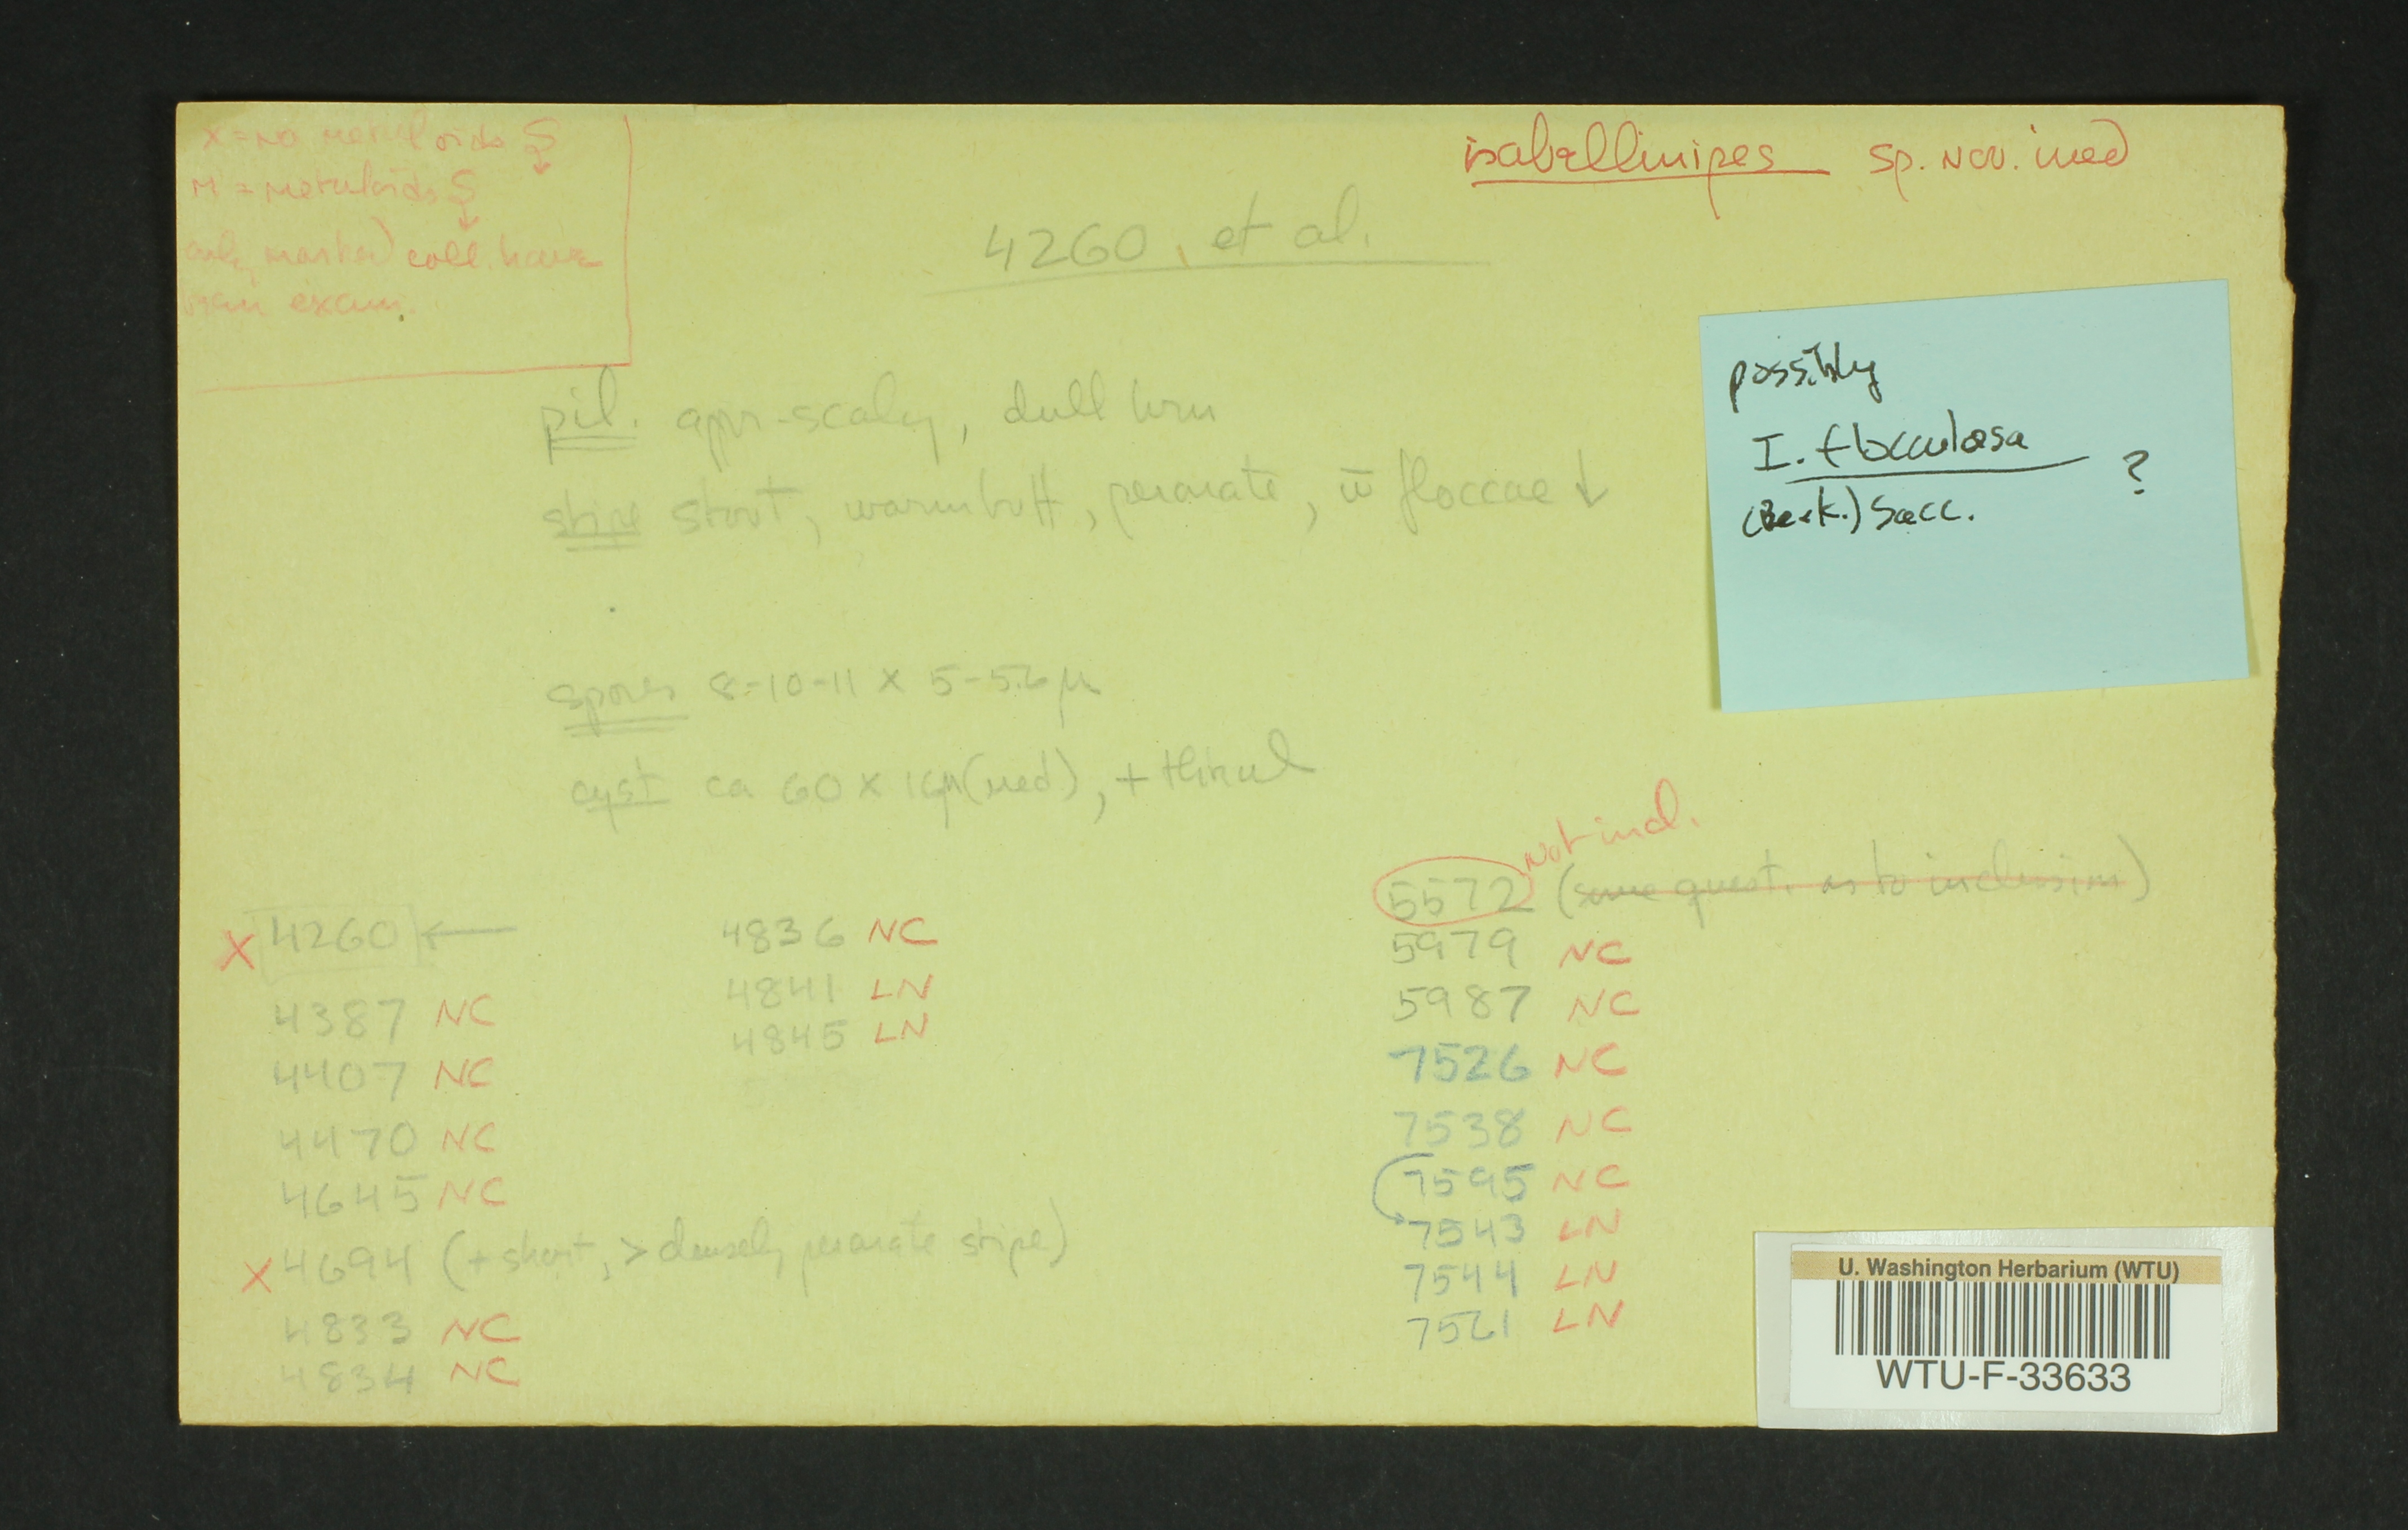 X = no metuloids S↓
M = metuloids S↓
only marked coll. have
been exam.
isabellinipes sp. nov. ined
4260, et al.
possibly
I. flocculosa
(Berk.) Sacc. ?
pil. appr-scaly, dull brn
stipe stout, warm buff, peronate, w̄ floccae ↓
spores 8-10-11 x 5-5.6 µ
cyst ca 60 x 16µ (med), + thinwl
X 4260 ←
4387 NC
4407 NC
4470 NC
4645 NC
X 4694 (+ short, > densely peronate stipe)
4833 NC
4834 NC
4836 NC
4841 LN
4845 LN
5572 Not incl. (some quest. as to inclusion)
5979 NC
5987 NC
7526 NC
7538 NC
7595 NC
7543 LN
7544 LN
7561 LN
U. Washington Herbarium (WTU)
WTU-F-33633